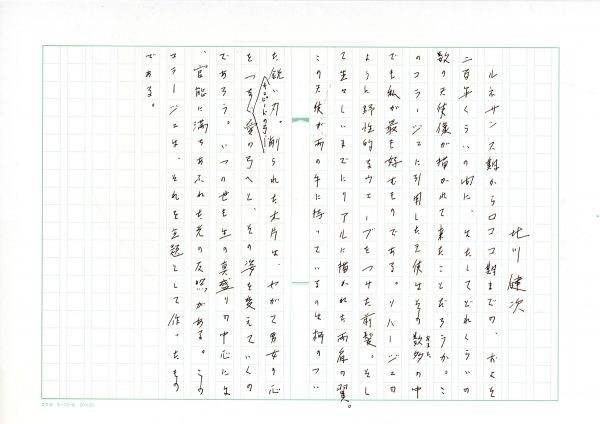 北川健次
ルネサンス期からロココ期までの、およそ
二百年くらいの間に、はたしてどれくらいの
数の天使像が描かれて来たことだろうか。こ
のコラージュに引用した天使はその数多の中
あまた
でも私が最も好むものである。
ように野性的なウェーブをつけた前髪。そし
て生々しいまでにリアルに描かれた両肩の翼。
この天使が両の手に持っているのは柄のつい
た鋭い刃。削られた木片は、やがて男女の心
をつなぐ愛の弓へと、その姿を変えていくの
であろう。いつの世も生の真盛りの中心には
、官能に満ちあふれた光の反照がある。この
コラージュは、それを主題として作ったもの
である。